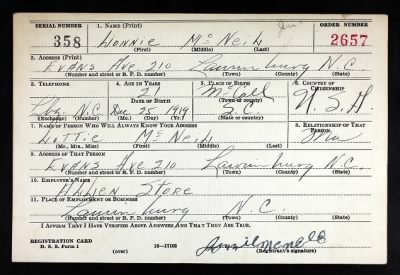 SERIAL NUMBER 1. NAME (Print) ORDER NUMBER
358 Lonnie McNeil Jr 2657
(First) (Middle) (Last)
2. ADDRESS (Print)
Evans Ave. 210 Laurinburg N.C.
(Number and street or R. F. D. number) (Town) (County) (State)
3. TELEPHONE 4. AGE IN YEARS 5. PLACE OF BIRTH 6. COUNTRY OF CITIZENSHIP
21 McColl
DATE OF BIRTH (Town or county)
N.C. Dec 25 1919 S.C. U.S.A.
(Exchange) (Number) (Mo.) (Day) (Yr.) (State or country)
7. NAME OF PERSON WHO WILL ALWAYS KNOW YOUR ADDRESS 8. RELATIONSHIP OF THAT PERSON
Lottie McNeil
(Mr., Mrs., Miss) (First) (Middle) (Last)
9. ADDRESS OF THAT PERSON
Evans Ave 210 Laurinburg N.C.
(Number and street or R. F. D. number) (Town) (County) (State)
10. EMPLOYER'S NAME
Allien Store
11. PLACE OF EMPLOYMENT OR BUSINESS
Laurinburg N.C.
(Number and street or R. F. D. number) (Town) (County) (State)
I AFFIRM THAT I HAVE VERIFIED ABOVE ANSWERS AND THAT THEY ARE TRUE.
REGISTRATION CARD
D. S. S. Form 1 (over) 16—17105 (Registrant's signature)